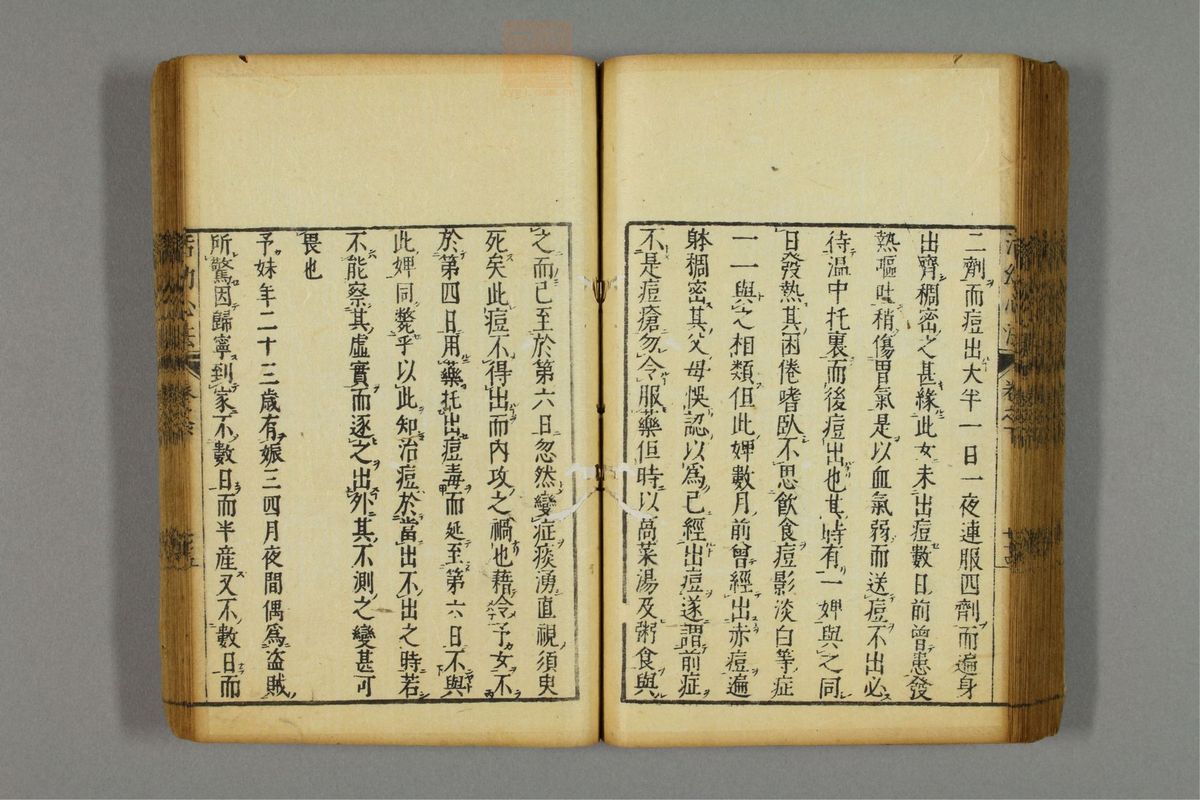 二劑而痘出大半一日一夜連服四劑而遍身
出齊稠密之甚緣此女未出痘數日前曾患發
熱嘔吐稍傷胃氣是以血氣弱而送痘不出必
待温中托裏而後痘出也其時有一婢與之同
日發熱其困倦嗜臥不思飲食痘影淡白等症
一一與之相類但此婢數月前曾經出赤痘遍
躰稠密其父母悞認以爲已經出痘遂謂前症
不是痘瘡勿令服藥但時以萵菜湯及粥食與
之而已至於第六日忽然變症痰湧直視須臾
死矣此痘不得出而内攻之禍也藉令予女不
於第四日用藥托出痘毒而延至第六日不與
此婢同斃乎以此知治痘於當出不出之時若
不能察其虛實而逐之出外其不測之變甚可
畏也
予妹年二十三歳有娠三四月夜間偶爲盗賊
所驚因歸寧到家不數日而半産又不數日而
活幼心法